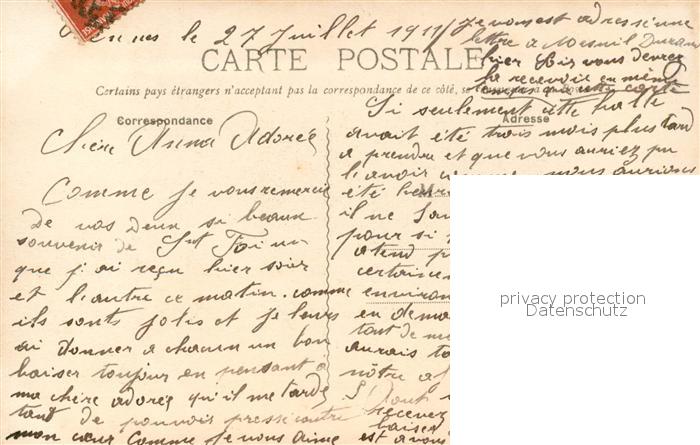 Rennes le 27 Juillet 1911
Je vous est adressé une
lettre a Mesnil Durand
hier soir vous devrez
la recevoir en même
temps que cette carte
CARTE POSTALE
Certains pays étrangers n'acceptant pas la correspondance de ce côté, se
Correspondance
Adresse
Chère Anna Adorée
Comme je vous remercie
De vos deux si beaux
souvenir de St
que j'ai reçu hier soir
et l'autre ce matin. comme
ils sont jolis et je leurs
ai donner a chacun un bon
baiser toujour en pensant a
ma chère adorée qu'il me tarde
tant de pouvoir presser contre
mon cœur comme je vous aime
Si seulement cette
avait été trois mois plus tard
a prendre et que vous auriez pu
l'avoir nous aurions
été heur
il ne
pour si
atend p
certaine
environ
en dema
tant de m
aurais to
nôtre a
Dont
recevez
baiser
est a vous
privacy protection
Datenschutz